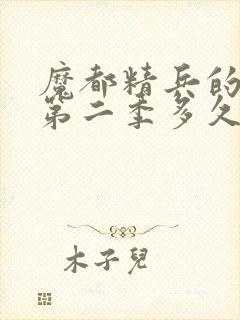 魔都精兵的
第二季多久
木子兒